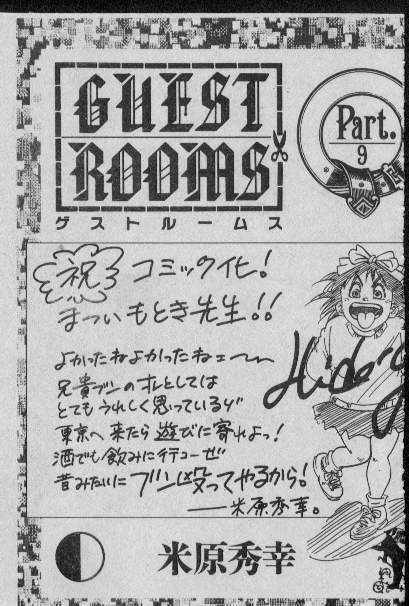 GUEST
ROOMS
ゲストルームス
Part.
9
祝 コミック化!
まついもとき先生!!
よかったねよかったねェ〜〜
兄貴ブンのオレとしては
とてもうれしく思っているゼ
東京へ来たら遊びに寄れよっ!
酒でも飲みに行コーゼ
昔みたいにブン殴ってやるから!
——米原秀幸。
Hide
米原秀幸